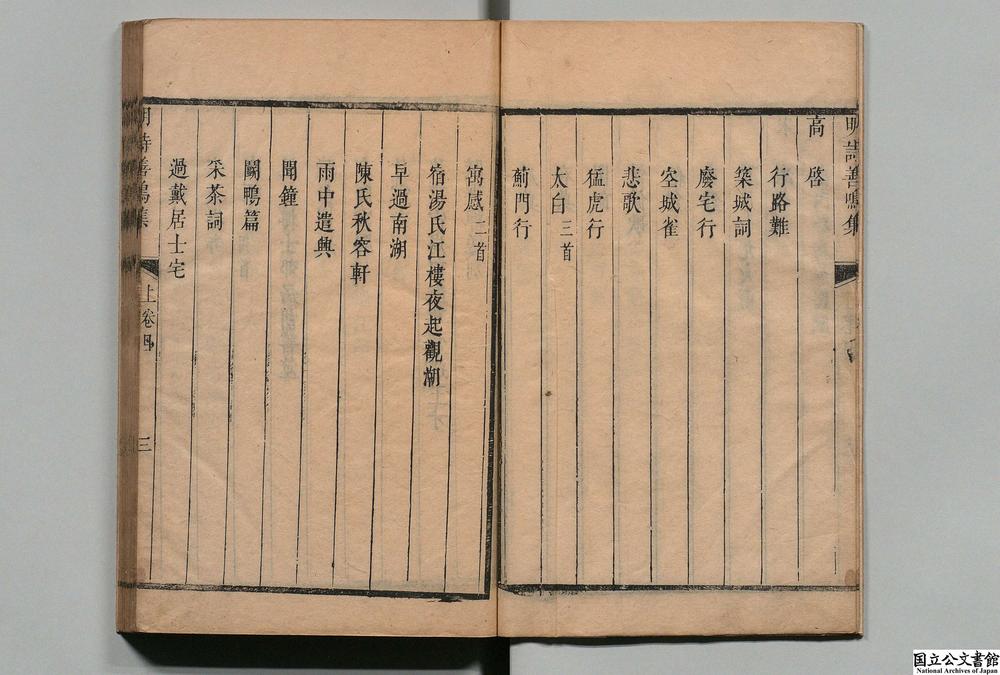 明詩善鳴集
高啓
行路難
築城詞
廢宅行
空城雀
悲歌
猛虎行
太白三首
薊門行
寓感二首
宿湯氏江樓夜起觀潮
早過南湖
陳氏秋容軒
雨中遣興
聞鐘
鬭鴨篇
采茶詞
過戴居士宅
明詩善鳴集
上卷四
三
国立公文書館
National Archives of Japan